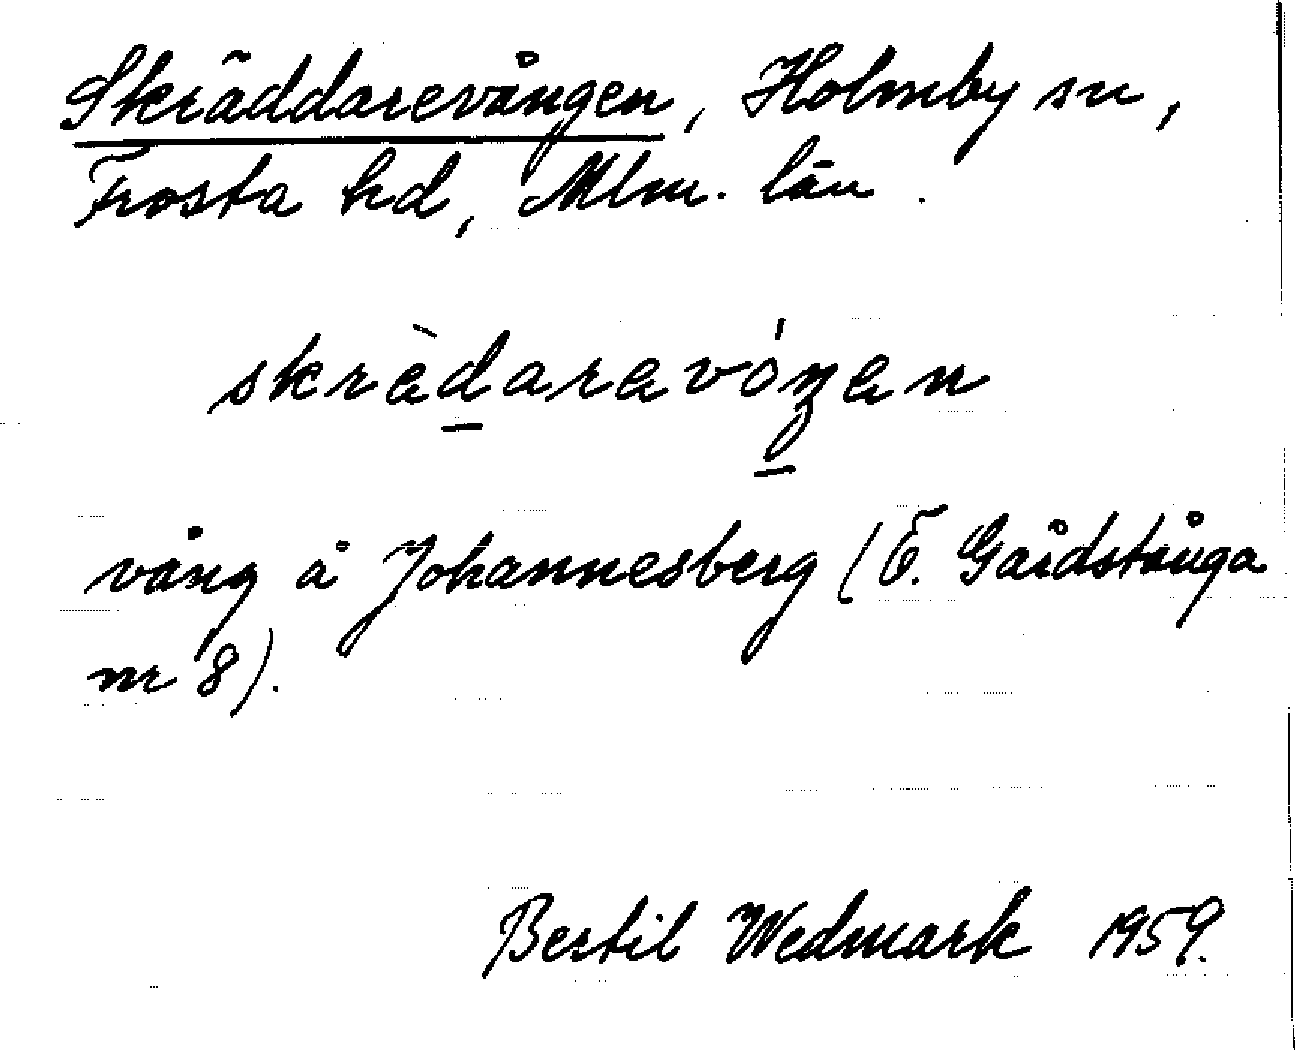 Skräddarevången, Holmby sn,
Frosta hd, Mlm. län.
skrädaravóŋan
vång å Johannesberg (Ö. Gårdstånga
nr 8).
Bertil Wedmark 1959.